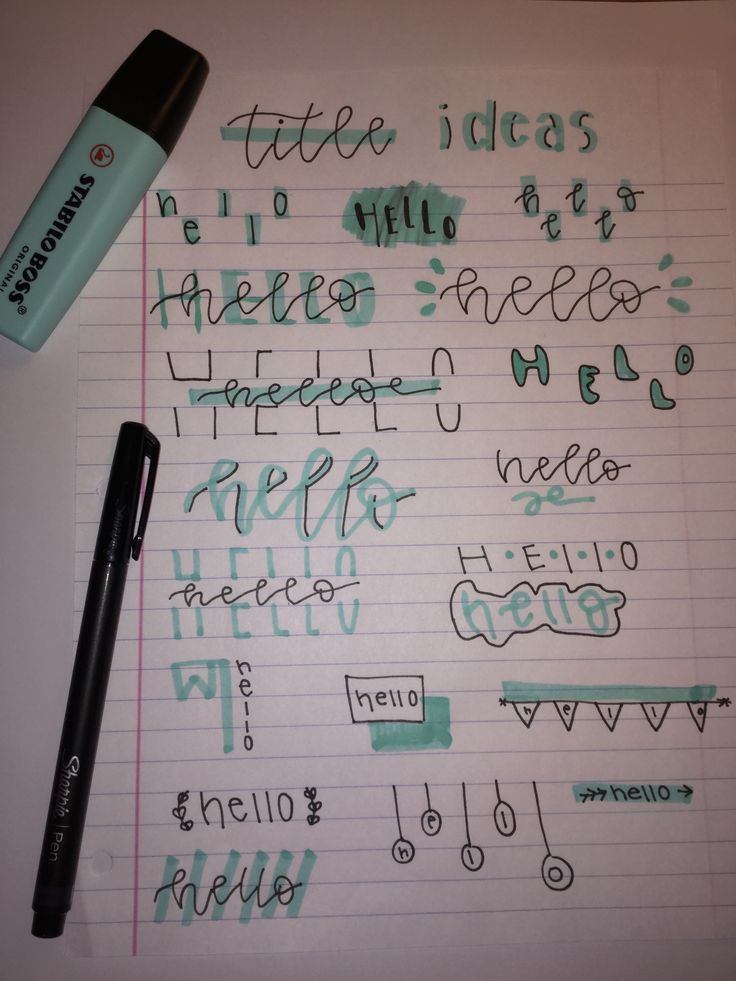 STABILO BOSS®
ORIGINAL
title ideas
hello HELLO hello
HELLO hello hello
HELLO hello HELLO
hello hello
HELLO hello H•E•l•l•O
hello
hello hello hello
hello hello hello
hello
Sharpie
Sharpie | Pen